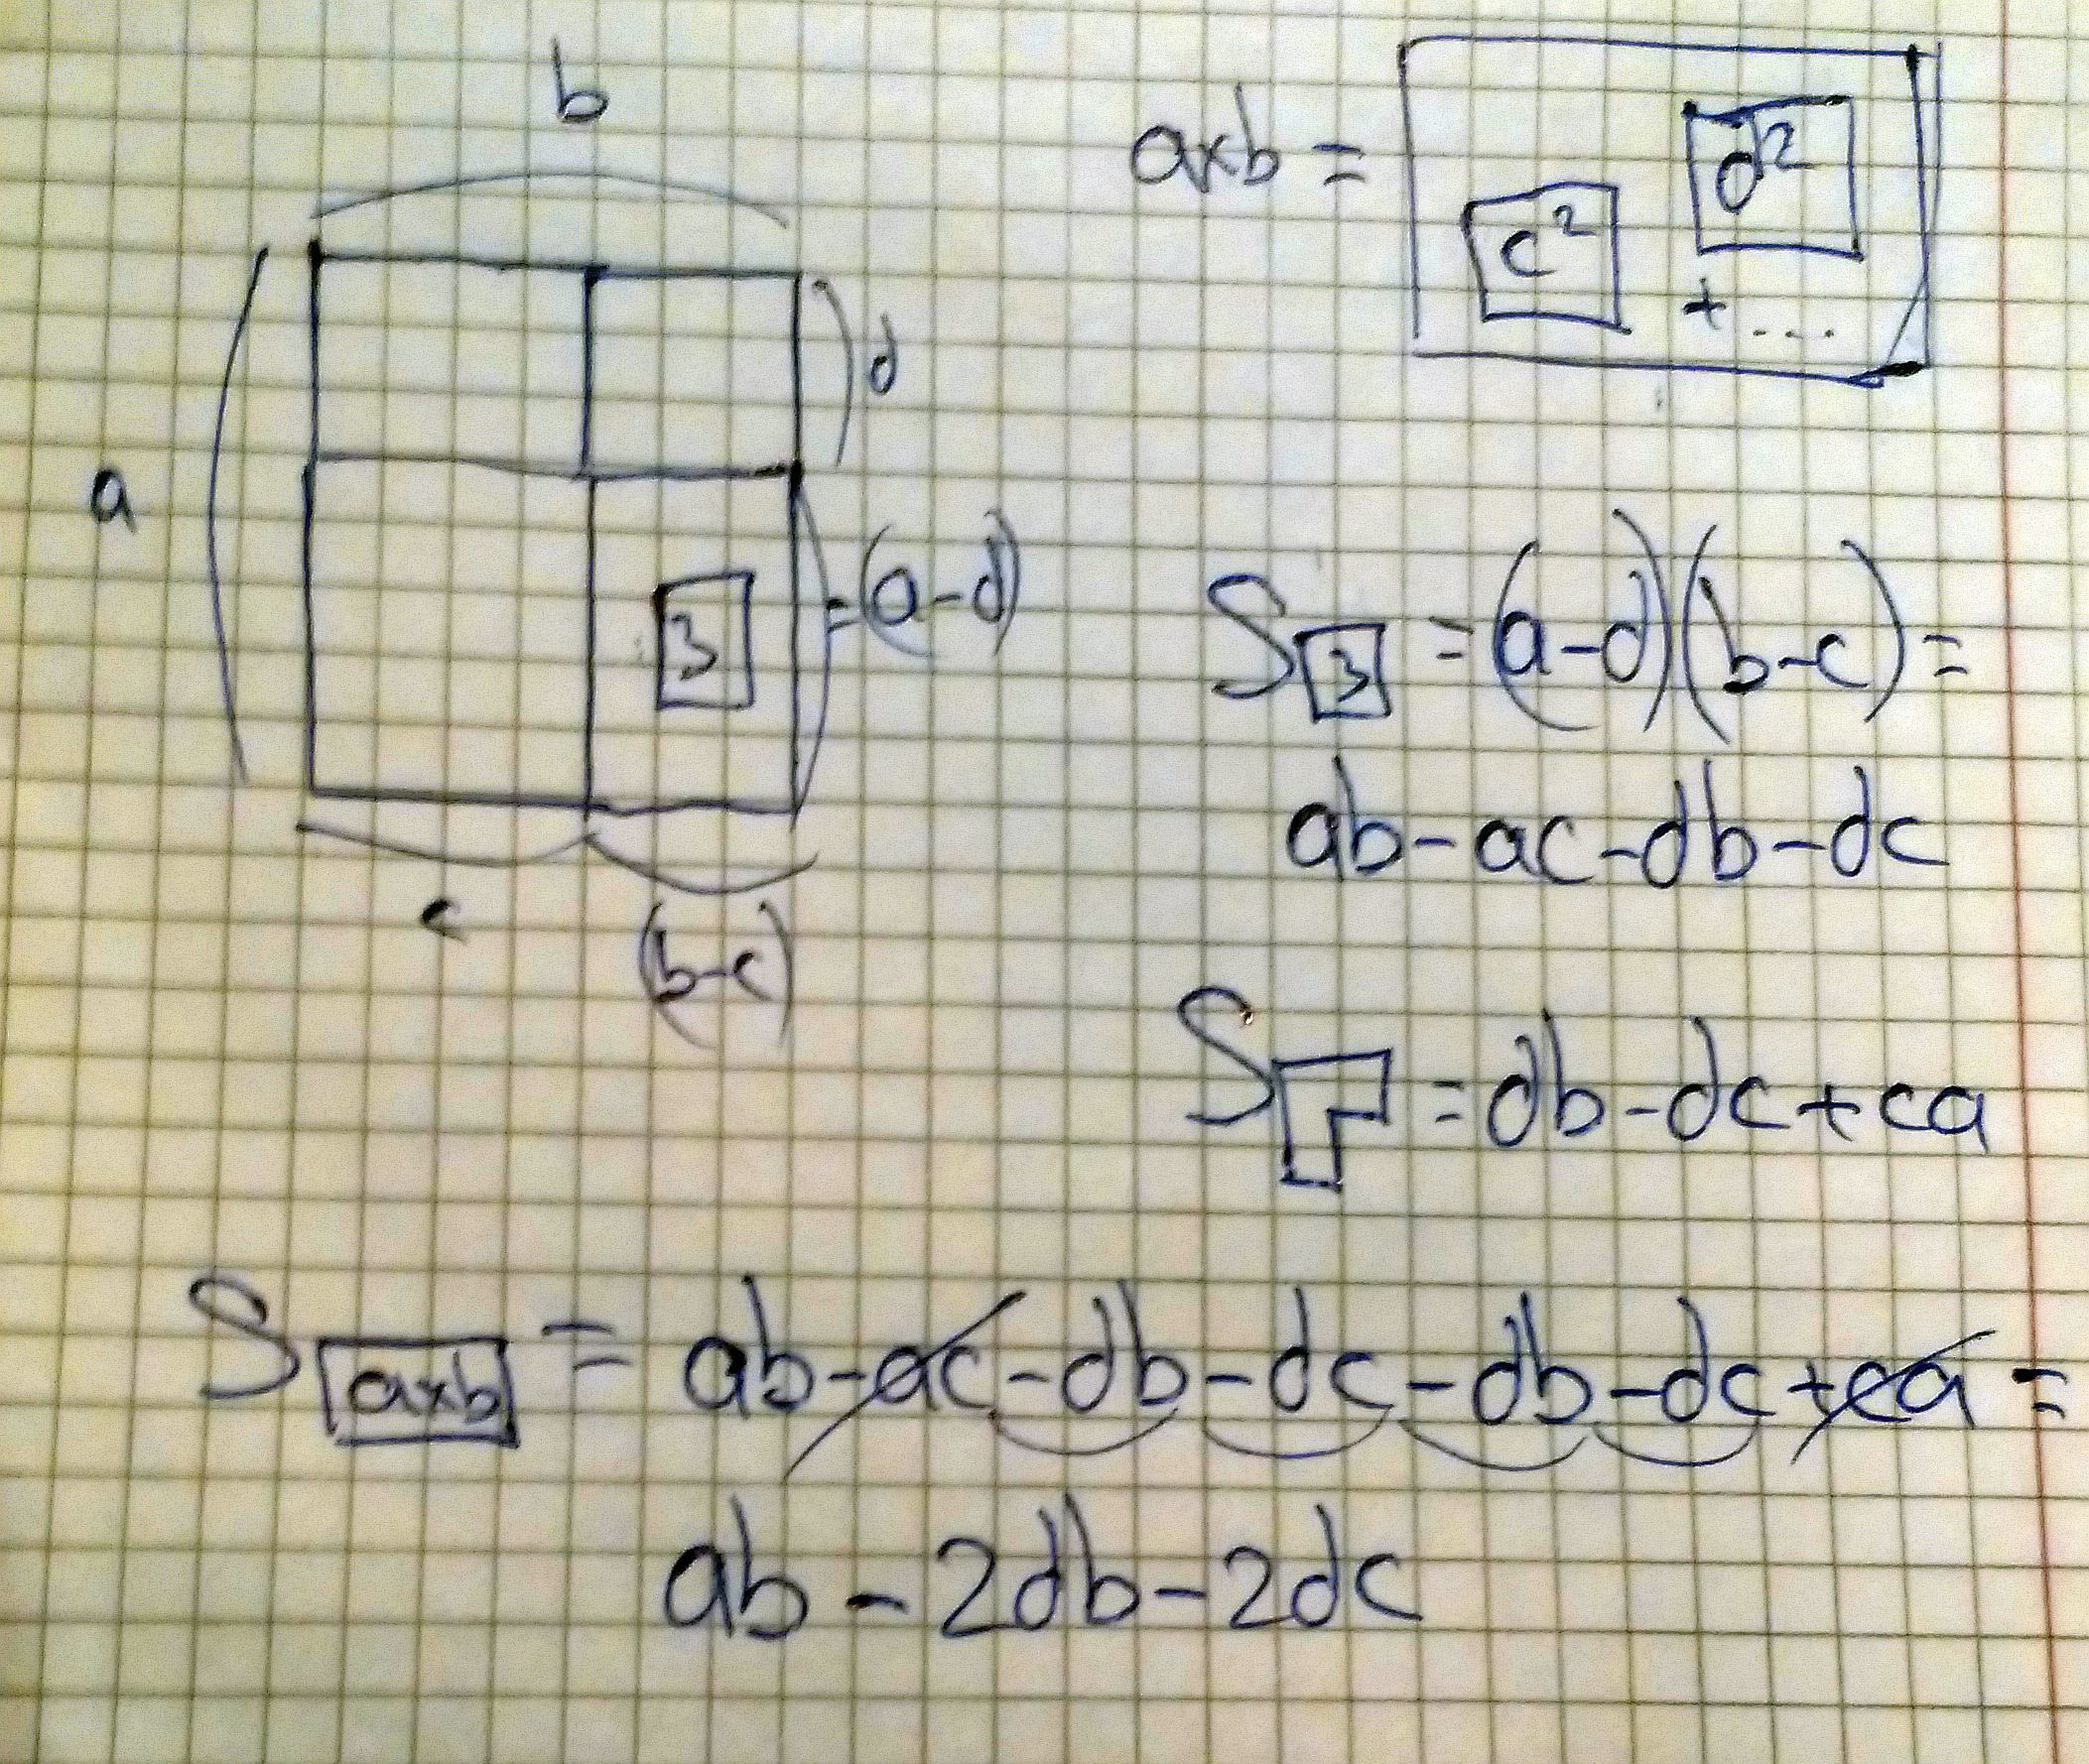 b
a
d
3
=(a-d)
c
(b-c)
axb =
c²
d²
+ ....
S 3 =(a-d)(b-c)=
ab-ac-db-dc
S =db-dc+ca
S axb = ab-ac-db-dc-db-dc+ca=
ab-2db-2dc